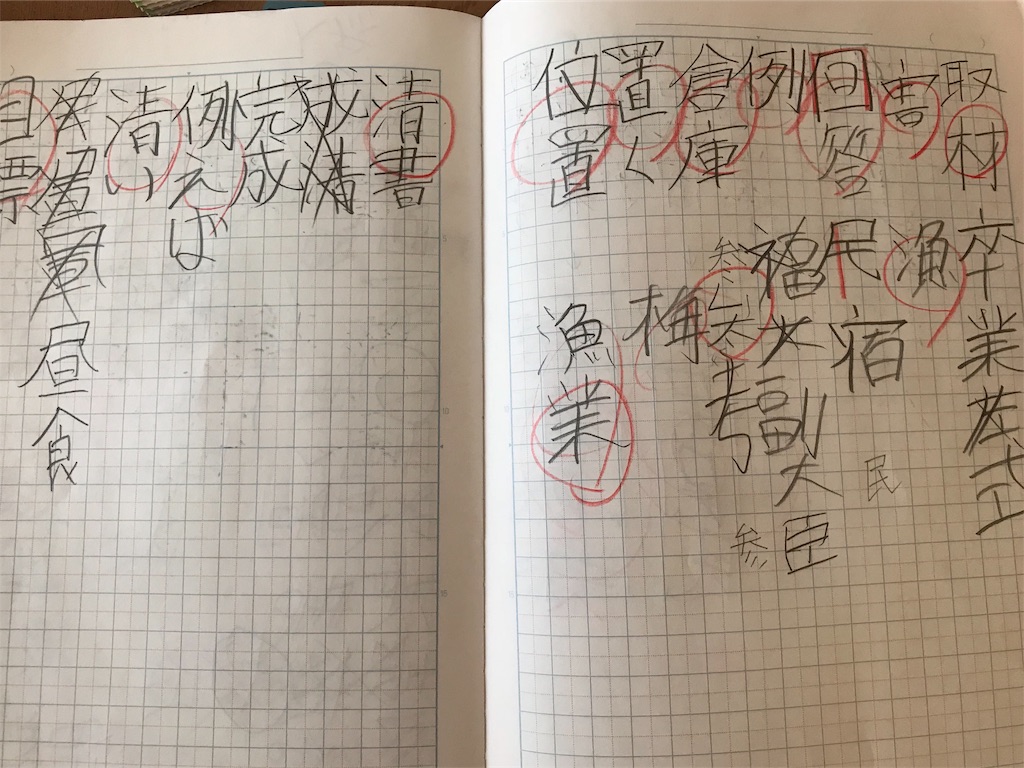 取材
卒業
式
害
漁
回答
民宿
民
例
福
副大臣
倉庫
参
考
参
置く
梅
位置
漁業
清書
完成
例えば
清い
昼食
目標